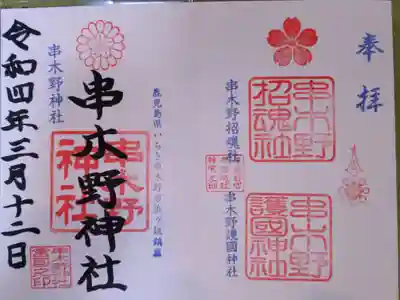 奉拝
串木野
招魂社
串木野
護國神社
串木野招魂社
串木野護國神社
鹿児島県いちき串木野市浜ヶ城鎮座
串木野神社
串木野
神社
串木野神社
令和四年三月十二日